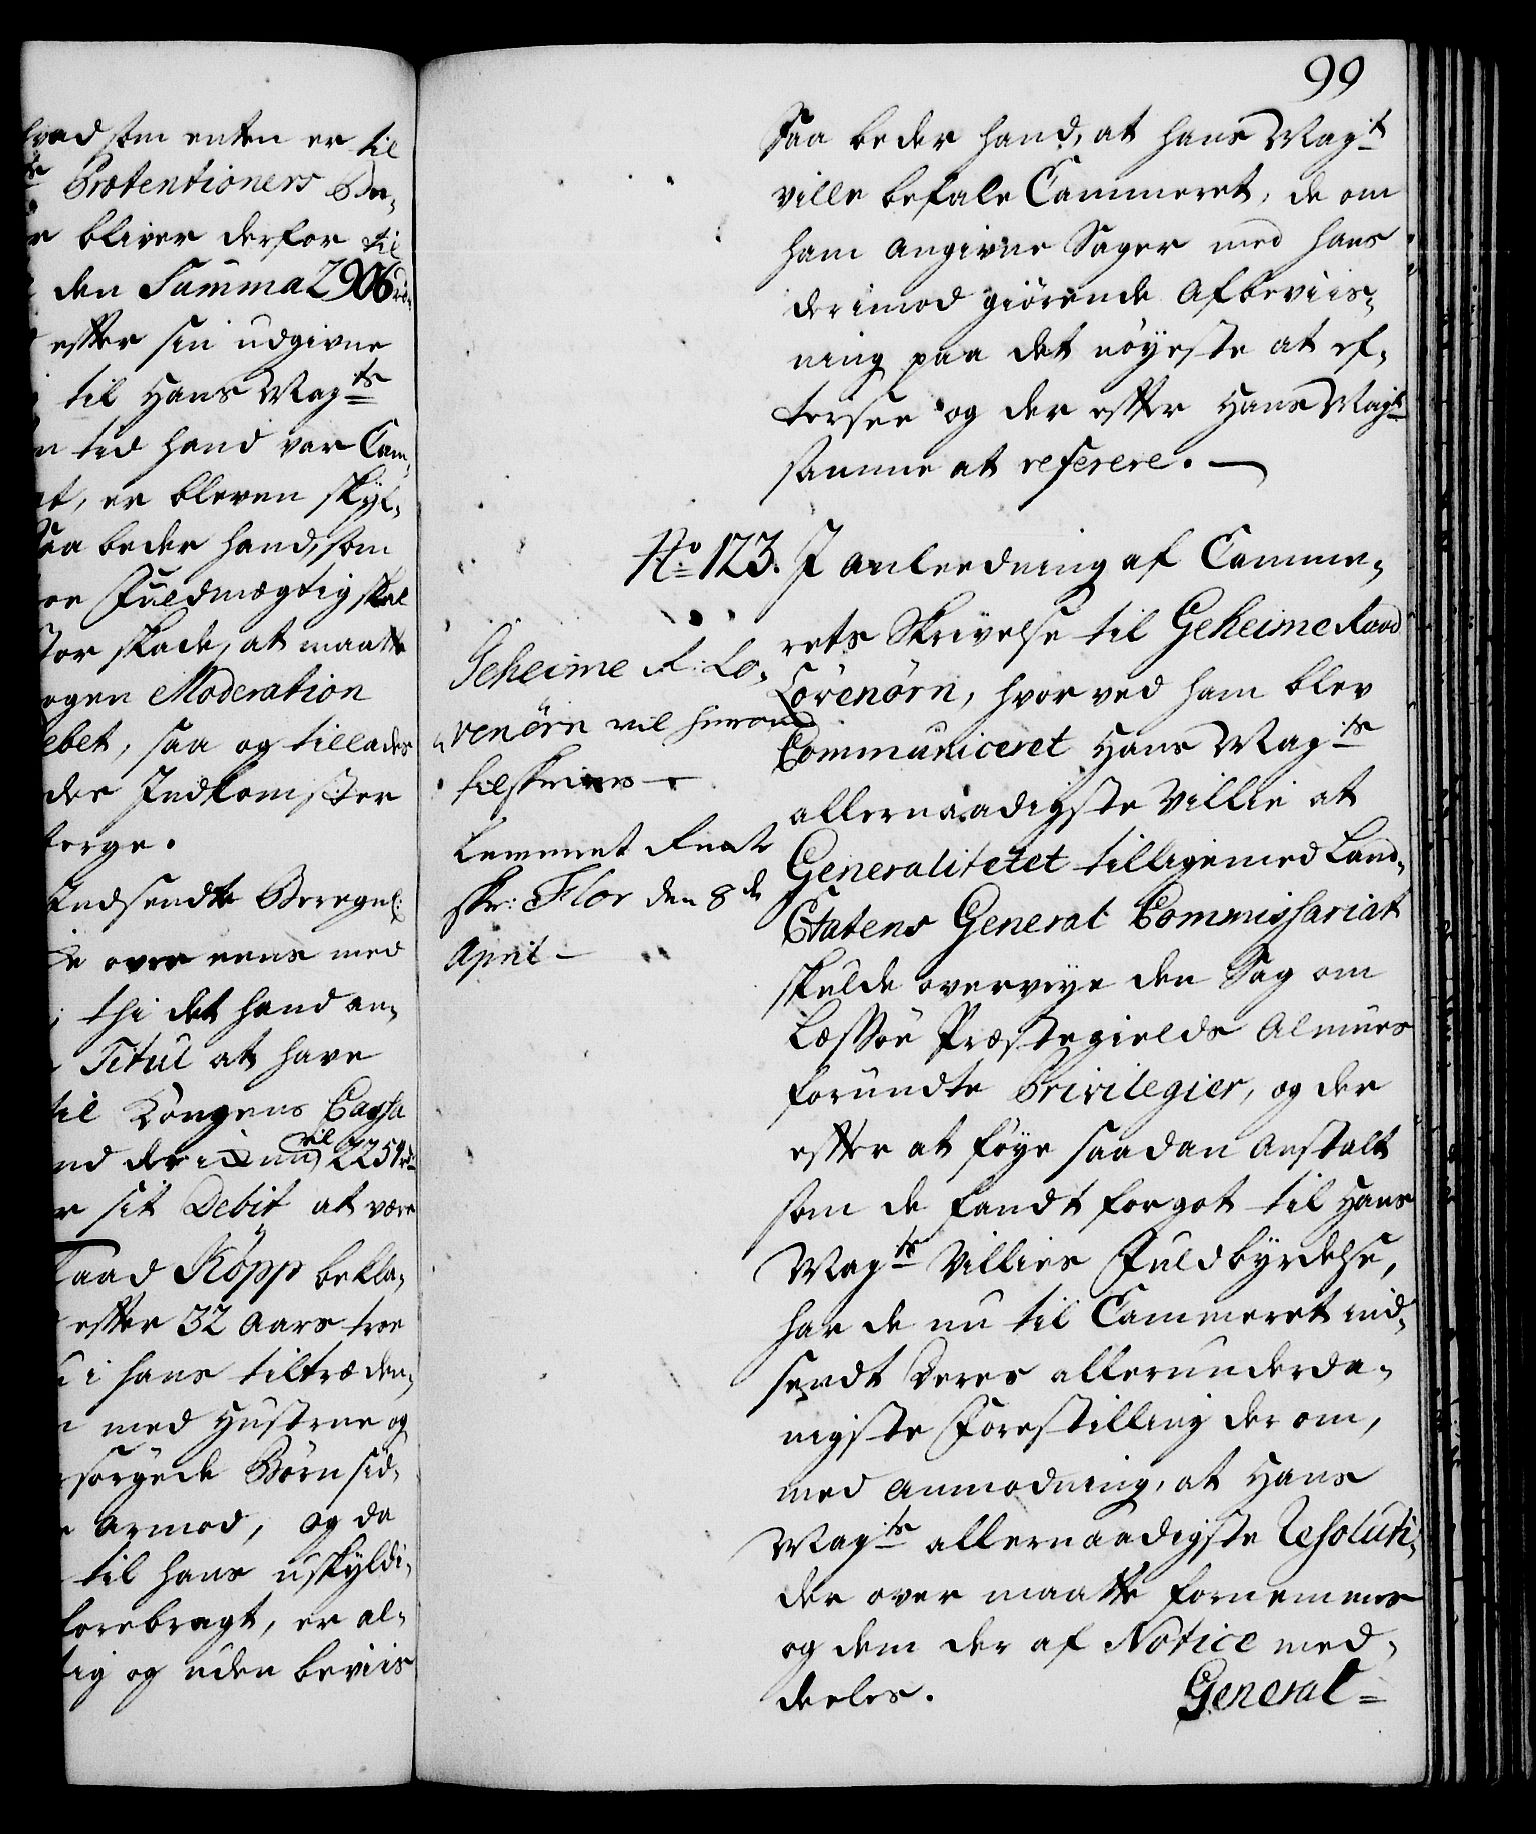 hvad som enten er til
Prætentioners Be-
bliver derfor til
den Summa 2906 rd.
efter sin udgivne
til Hans May:ts
tid hand var Cam-
er bleven skyl-
Saa beder hand, som
Fuldmægtig skal
stor skade, at maatte
nogen Moderation
Debet, saa og tillades
der Indkomster
sorge.
Indsendte Beregn:
over eens med
thi det hand an-
Titul at have
til Kongens Cassa
til
2251 rd
sit Debit at være
Raad Köpp bekla-
efter 32 Aars troe
i hans tiltræden-
med Hustrue og
uforsørgede Børn sid-
Armod, og da
til hans uskyldi-
forebragt, er al-
og uden beviis
99
Saa beder hand, at hans May:t
ville befale Cammeret, de om
ham angivne Sager med hans
derimod giörende Afbeviis-
ning paa det nöyeste at ef-
tersee og der efter Hans May:t
samme at referere. —
No 123. I anleedning af Camme-
rets Skrivelse til Geheime Raad
Lövenörn, hvor ved ham blev
Communiceret Hans May:ts
allernaadigste Villie at
Generalitetet tilligemed Land-
Etatens General Commissariat
skulde overveye den Sag om
Læssöe Præstegields Almues
forundte Privilegier, og der
efter at föye saadan Anstalt
som de fandt forgot til Hans
May:ts Villies Fuldbyrdelse,
har de nu til Cammeret ind-
sendt Deres allerunderda-
nigste Forestilling der om,
med Anmodning, at Hans
May:ts allernaadigste Resoluti-
der over maatte fornemmes
og dem der af Notice med-
deeles.
General-
Geheime R: Lö-
venörn vil herom
tilskrives —
Leveret Rent
skr: Flor den 8de
April —